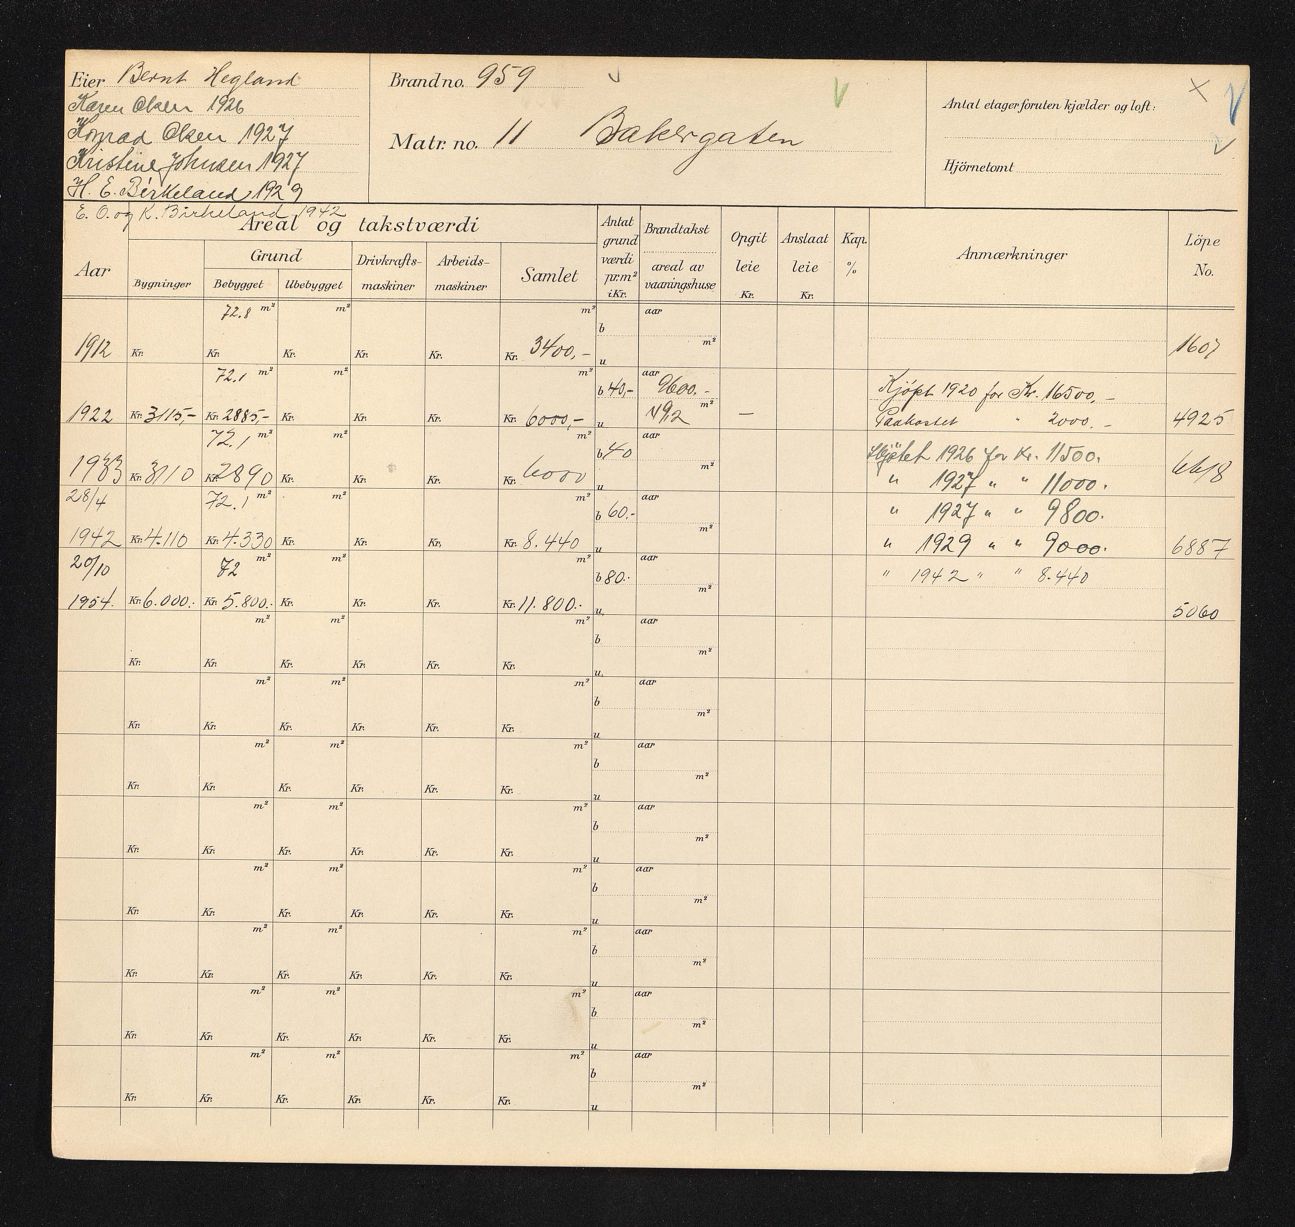 Eier Bernt Hegland
Karen Olsen 1926
Konrad Olsen 1927
Kristine Johnsen 1927
H. E. Birkeland 1929
E. O. og K. Birkeland 1942
Brand no. 959
Matr. no. 11 Bakergaten
Antal etager foruten kjælder og loft:
Hjörnetomt
Areal og takstværdi
Aar
Bygninger
Grund
Bebygget
Ubebygget
Drivkrafts-
maskiner
Arbeids-
maskiner
Samlet
Antal
grund
værdi
pr. m²
i Kr.
Brandtakst
areal av
vaaningshuse
Opgit
leie
Kr.
Anslaat
leie
Kr.
Kap.
%
Anmærkninger
Löpe
No.
72.8 m² m² m² aar
b
m²
1912 Kr. Kr. Kr. Kr. Kr. Kr. 3400,- u 1607
72.1 m² m² m² aar
b 40,- 9600.- Kjøpt 1920 for Kr. 16500,-
m²
1922 Kr. 3115,- Kr. 2885,- Kr. Kr. Kr. Kr. 6000,- u 49,2 — Paakostet " 2000.- 4925
72.1 m² m² m² aar
b 40 Skjøtet 1926 for Kr. 11500.
m²
1933 Kr. 3110 Kr. 2890 Kr. Kr. Kr. Kr. 6000 u " 1927 " " 11000. 6618
28/4 72.1 m² m² m² aar
b 60.- " 1927 " " 9800.
m²
1942 Kr. 4.110 Kr. 4.330 Kr. Kr. Kr. Kr. 8.440 u " 1929 " " 9000. 6887
20/10 72 m² m² m² aar
b 80. " 1942 " " 8.440
m²
1954. Kr. 6.000.- Kr. 5.800.- Kr. Kr. Kr. Kr. 11.800.- u 5060
m² m² m² aar
b
m²
Kr. Kr. Kr. Kr. Kr. Kr. u
m² m² m² aar
b
m²
Kr. Kr. Kr. Kr. Kr. Kr. u
m² m² m² aar
b
m²
Kr. Kr. Kr. Kr. Kr. Kr. u
m² m² m² aar
b
m²
Kr. Kr. Kr. Kr. Kr. Kr. u
m² m² m² aar
b
m²
Kr. Kr. Kr. Kr. Kr. Kr. u
m² m² m² aar
b
m²
Kr. Kr. Kr. Kr. Kr. Kr. u
m² m² m² aar
b
m²
Kr. Kr. Kr. Kr. Kr. Kr. u
m² m² m² aar
b
m²
Kr. Kr. Kr. Kr. Kr. Kr. u